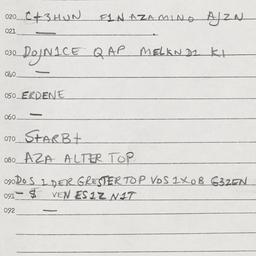 020 C+3HUN F1NAZAMINO AJZN
021 —
030 DOJN1CE QAP MELKND1 K1
040 —
050 ERDENE
060 —
070 STARB+
080 AZA ALTER TOP
090 DOS 1DER GRESTER TOP VOS 1X OB G3ZEN
091 - $ VEN ES1Z N1T
092 —